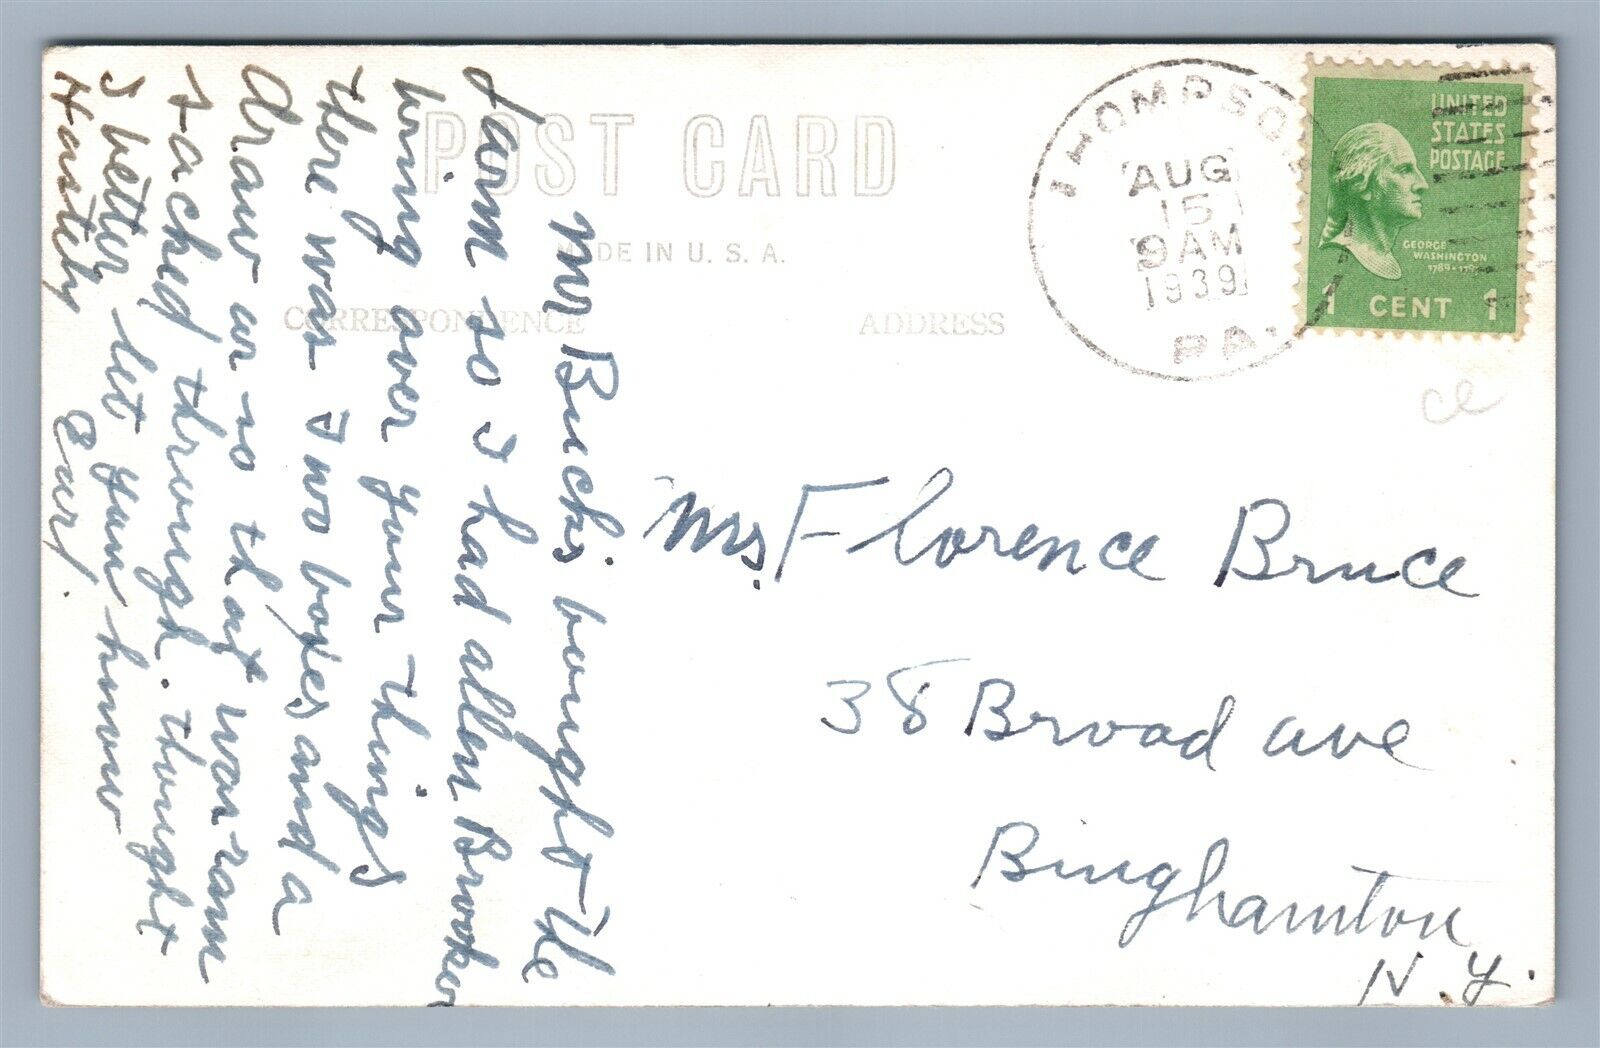 POST CARD
MADE IN U.S.A.
CORRESPONDENCE
ADDRESS
THOMPSON
AUG
15
9 AM
1939
PA.
UNITED
STATES
POSTAGE
GEORGE
WASHINGTON
1 CENT 1
Mr Buck's bought the
farm so I had allen Brooker
bring over your things
there was two boxes and a
draw
tached through. thought
I better let you know
Hastely Earl.
Mrs. Florence Bruce
38 Broad ave
Binghamton
N.Y.
ce